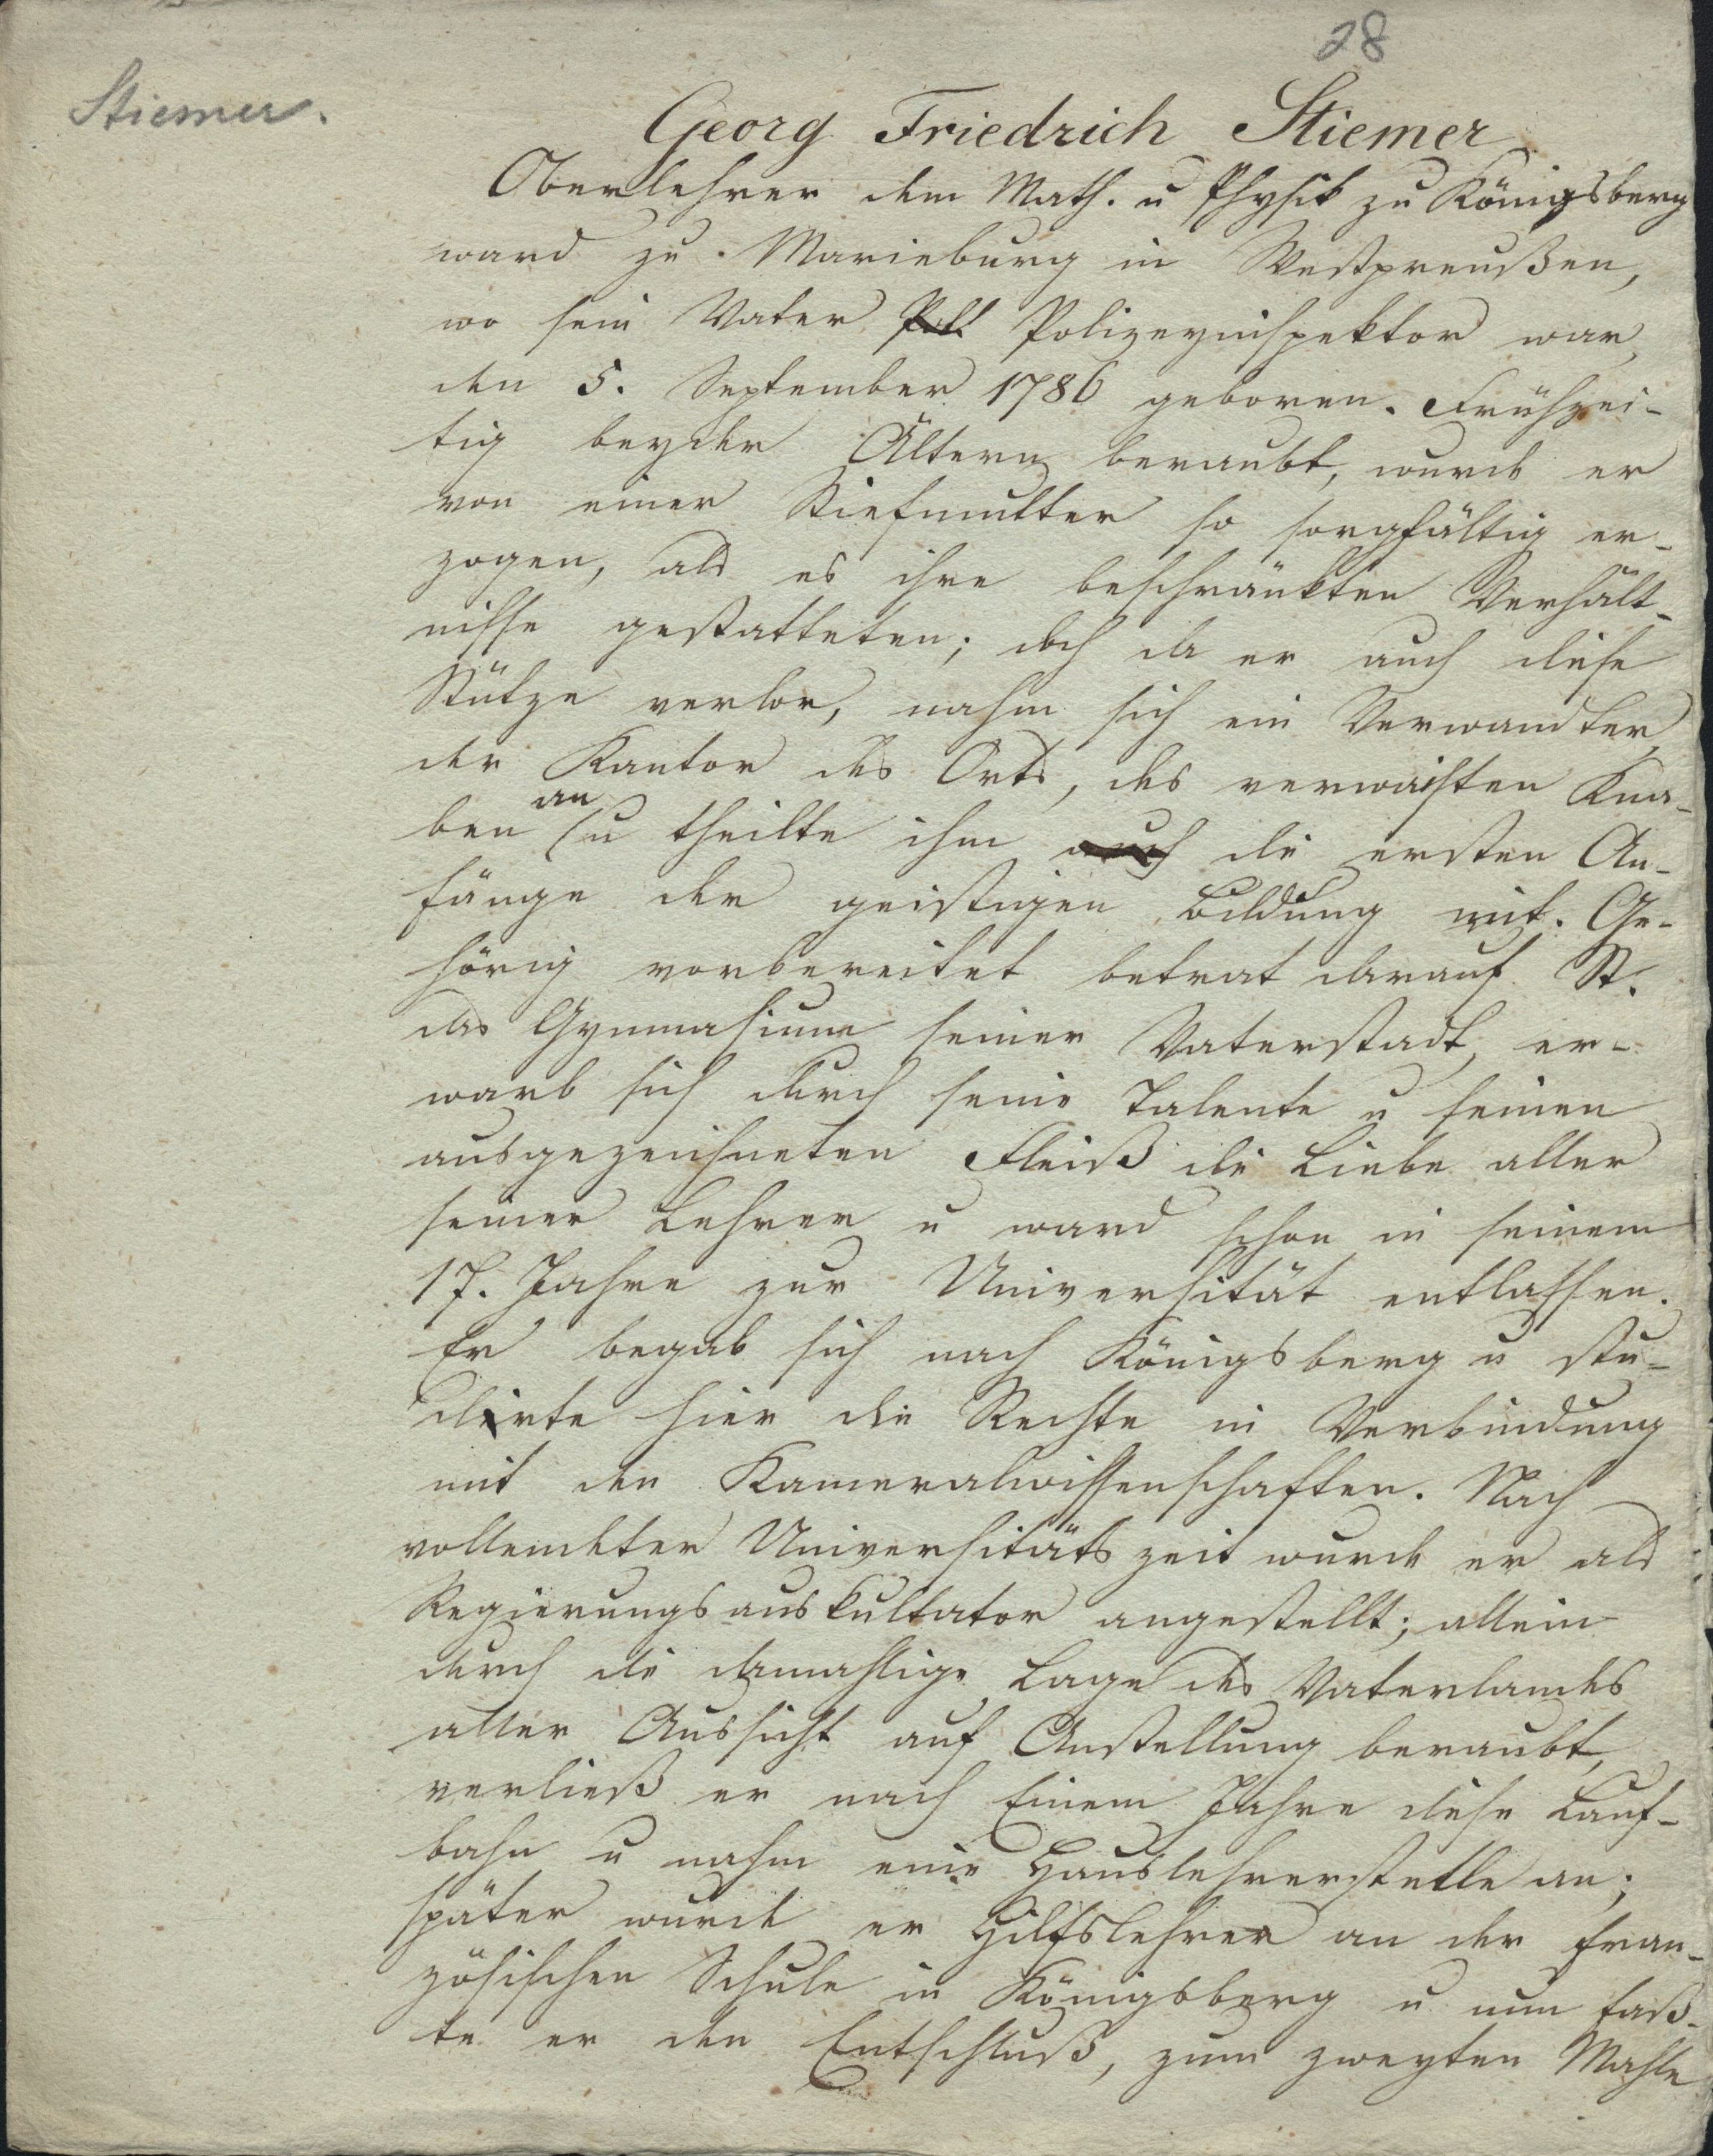 28
Stiemer.
Georg Friedrich Stiemer
Oberlehrer der Math. u Physik zu Königsberg
ward zu Marienburg in Westpreußen,
wo sein Vater Pol. Polizeyinspektor war,
den 5. September 1786 geboren. Frühzei-
tig beyder Ältern beraubt, wurde er
von einer Stiefmutter so sorgfältig er-
zogen, als es ihre beschränkten Verhält-
nisse gestatteten; doch da er auch diese
Stütze verlor, nahm sich ein Verwandter,
der Kantor des Orts, des verwaisten Kna-
ben an u theilte ihm auch die ersten An-
fänge der geistigen Bildung mit. Ge-
hörig vorbereitet betrat darauf St.
das Gymnasium seiner Vaterstadt, er-
warb sich durch seine Talente u seinen
ausgezeichneten Fleiß die Liebe aller
seiner Lehrer u ward schon in seinem
17. Jahre zur Universität entlassen.
Er begab sich nach Königsberg u stu-
dirte hier die Rechte in Verbindung
mit den Kameralwissenschaften. Nach
vollendeter Universitätszeit wurde er als
Regierungsauskultator angestellt; allein
durch die damahlige Lage des Vaterlandes
aller Aussicht auf Anstellung beraubt,
verließ er nach Einem Jahre diese Lauf-
bahn u nahm eine Hauslehrerstelle an;
später wurde er Hilfslehrer an der fran-
zösischen Schule in Königsberg u nun faß-
te er den Entschluß, zum zweyten Mahle